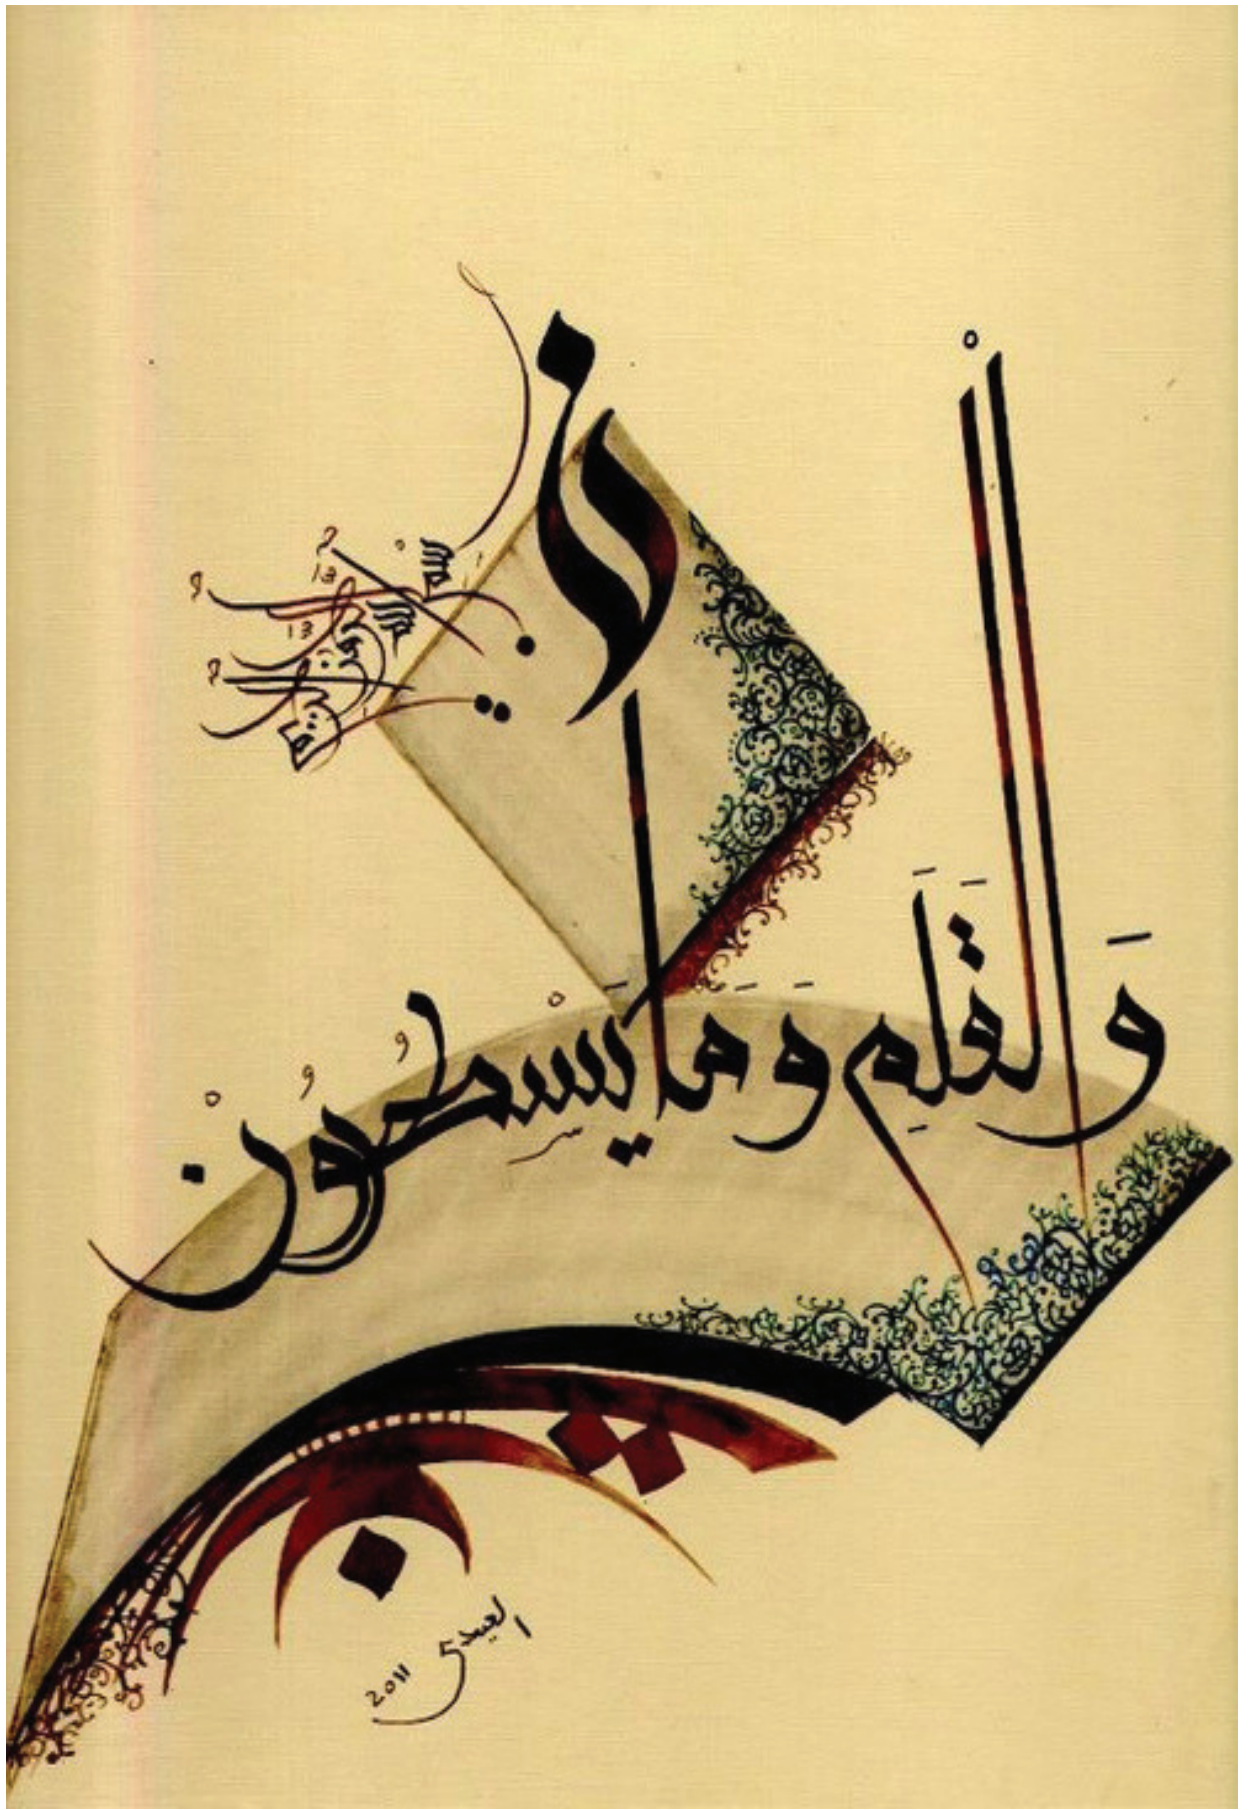 ن
وَالْقَلَمِ وَمَا يَسْطُرُونَْ
العبيدي
2011